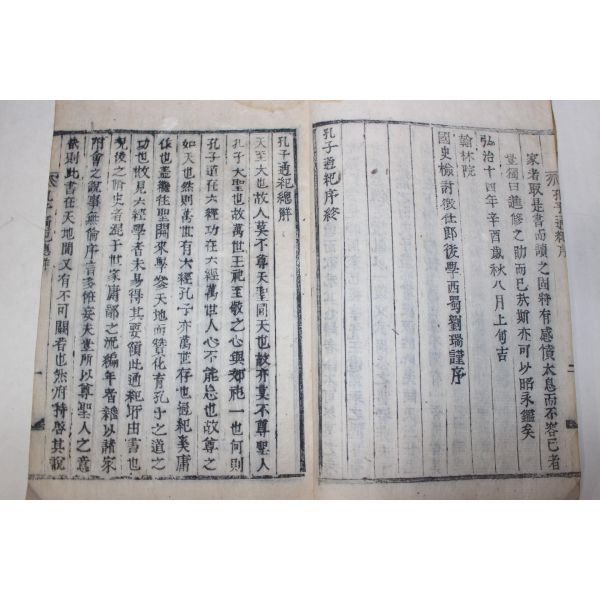 孔子通紀序
家者取是書而讀之固將有感憤太息而不容已者
豈獨曰進修之助而已哉斯亦可以昭永鑑矣
弘治十四年辛酉歲秋八月上旬吉
翰林院
國史檢討徵仕郎後學西蜀劉瑞謹序
孔子通紀序終
孔子通紀總辭
天至大也故人莫不尊天聖同天也故亦莫不尊聖人
孔子大聖也故萬世王祀至敬之心與郊祀一也何則
孔子道在六經功在六經萬世人心不能忘也故尊之
如天也然則萬世有六經孔子亦萬世存也通紀奚庸
作也盖繼往聖開來學參天地而贊化育孔子之道之
功也故見六經學者未易得其要領此通紀所由書也
況後之附史者混于世家庸鄙之流編年者雜以諸家
附會之說事無倫序言多誕妄夫豈所以尊聖人之意
然則此書在天地間又有不可闕者也然府特啓其說
孔子通紀總辭